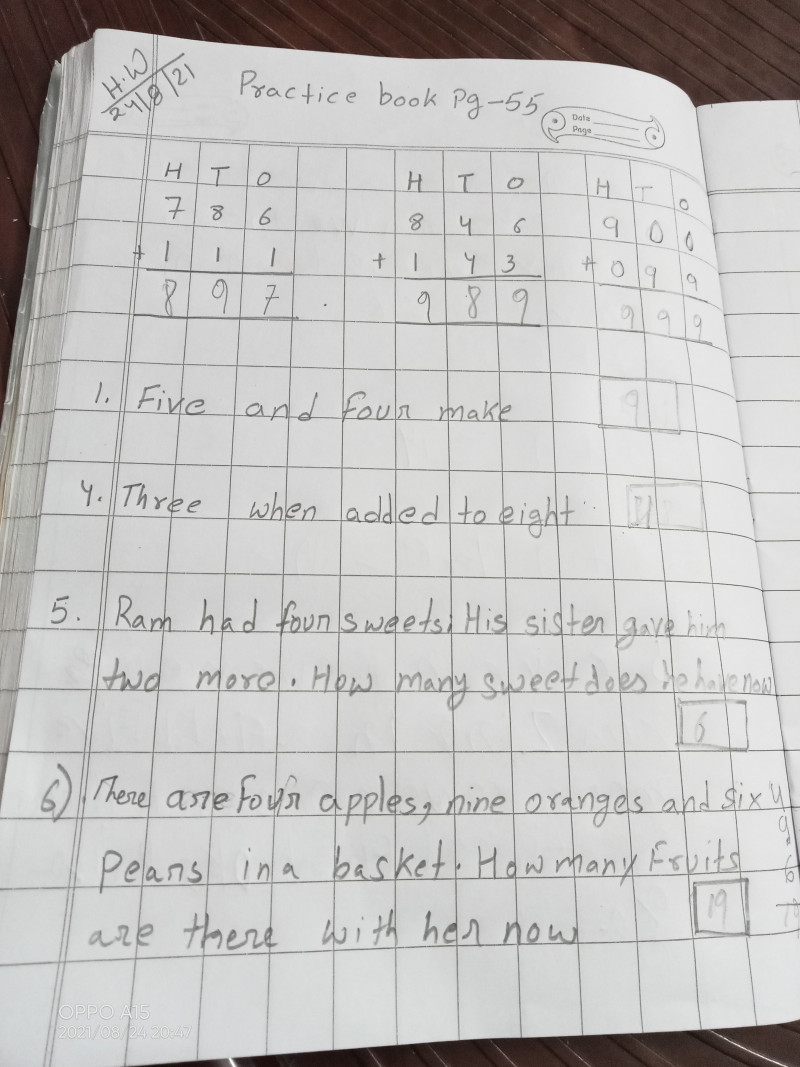 H.W
24/8/21
Practice book Pg-55
Date
Page
H T O H T O H T O
7 8 6 8 4 6 9 0 0
+ 1 1 1 + 1 4 3 + 0 9 9
8 9 7 9 8 9 9 9 9
1. Five and four make 9
4. Three when added to eight 11
5. Ram had four sweets; His sister gave him
two more. How many sweet does he have now
6
6) There are four apples, nine oranges and six
Pears in a basket. How many Fruits
are there with her now 19
4
9
6
19
OPPO A15
2021/08/24 20:47